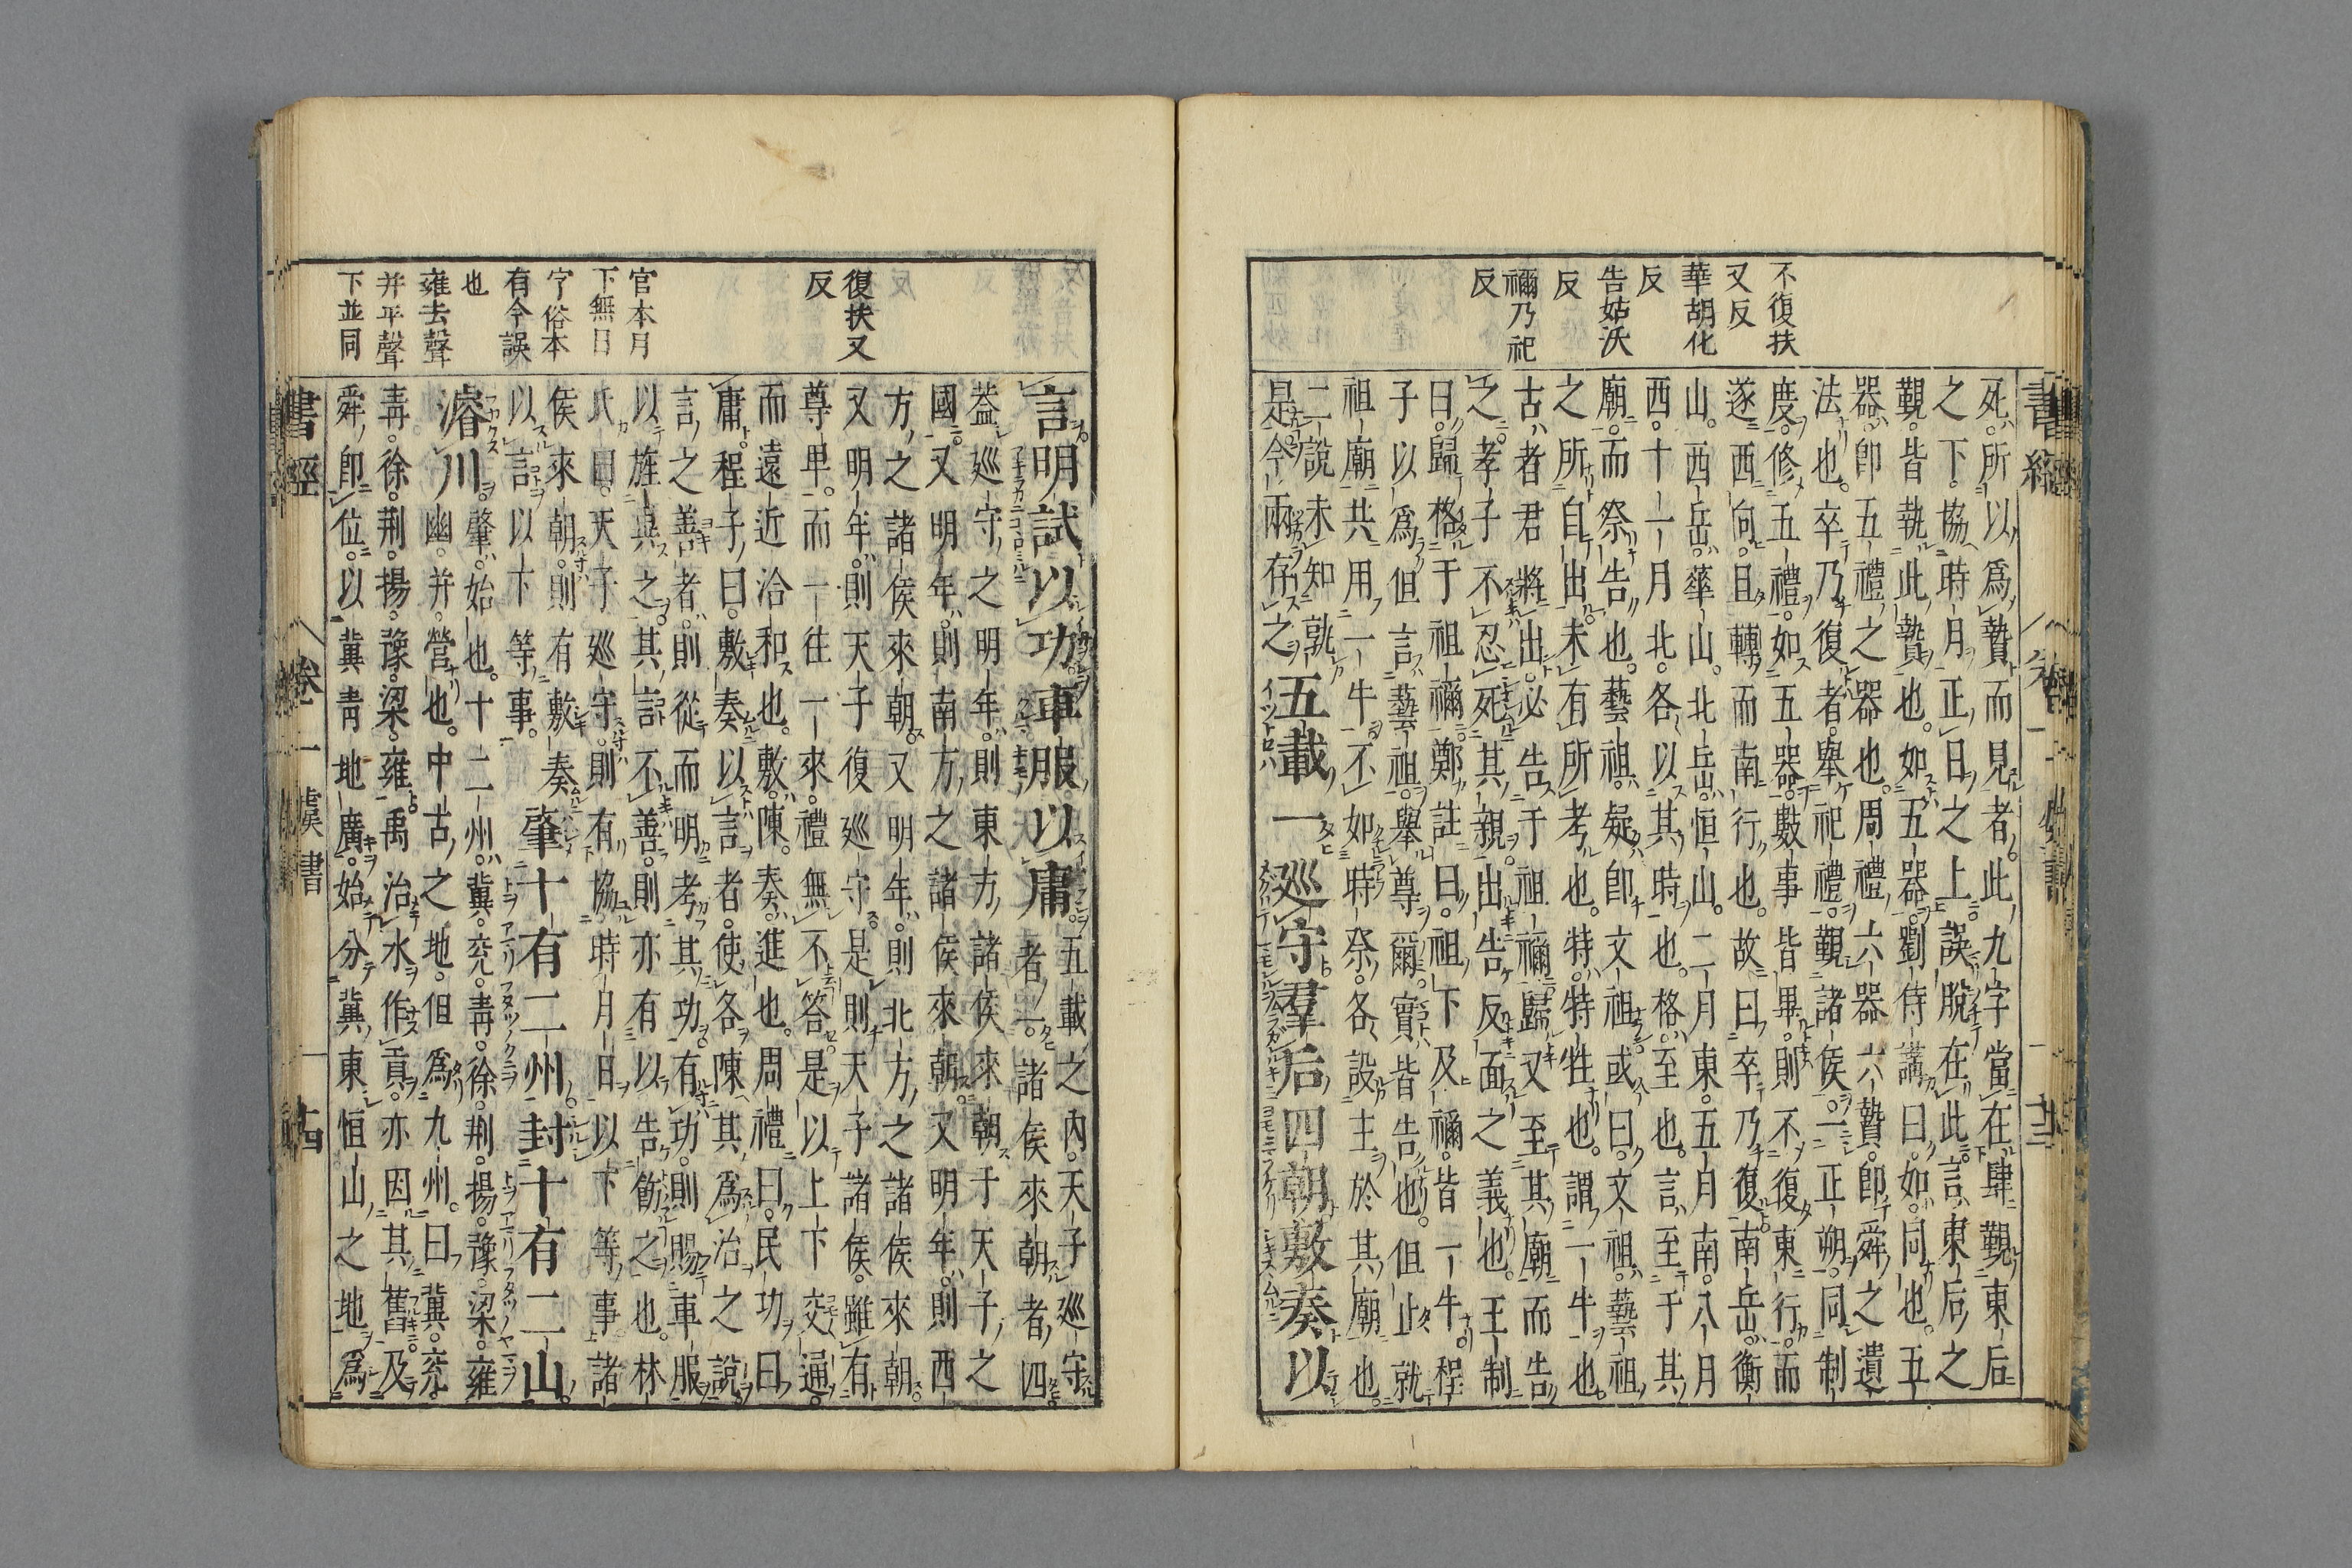 不復扶
又反
華胡化
反
告姑沃
反
禰乃祀
反
死所以爲贄而見者此九字當在肆覲東后
之下協時月正日之上誤脫在此言東后之
覲皆執此贄也如五器劉侍講曰如同也五
器卽五禮之器也周禮六器六贄卽舜之遺
法也卒乃復者舉祀禮覲諸侯一正朔同制
度修五禮如五器數事皆畢則不復東行而
遂西向且轉而南行也故曰卒乃復南岳衡
山西岳華山北岳恒山二月東五月南八月
西十一月北各以其時也格至也言至于其
廟而祭告也藝祖疑卽文祖或曰文祖藝祖
之所自出未有所考也特特牲也謂一牛也
古者君將出必告于祖禰歸又至其廟而告
之孝子不忍死其親出告反面之義也王制
曰歸格于祖禰鄭註曰祖下及禰皆一牛程
子以爲但言藝祖舉尊爾實皆告也但止就
祖廟共用一牛不如時祭各設主於其廟也
二說未知孰
是今兩存之五載一巡守羣后四朝敷奏以
書經 卷一 虞書 十三
復扶又
反
官本月
下無日
字俗本
有今誤
也
雍去聲
并平聲
下並同
言明試以功車服以庸五載之內天子巡守
者一諸侯來朝者四
葢巡守之明年則東方諸侯來朝于天子之
國又明年則南方之諸侯來朝又明年則西
方之諸侯來朝又明年則北方之諸侯來朝
又明年則天子復巡守是則天子諸侯雖有
尊卑而一往一來禮無不答是以上下交通
而遠近洽和也敷陳奏進也周禮曰民功曰
庸程子曰敷奏以言者使各陳其爲治之說
言之善者則從而明考其功有功則賜車服
以旌異之其言不善則亦有以告飭之也林
氏曰天子巡守則有協時月日以下等事諸
侯來朝則有敷奏
以言以下等事肇十有二州封十有二山
濬川肇始也十二州冀兗青徐荆揚豫梁雍
幽并營也中古之地但爲九州曰冀兗
青徐荆揚豫梁雍禹治水作貢亦因其舊及
舜卽位以冀青地廣始分冀東恒山之地爲
書經 卷一 虞書 十四